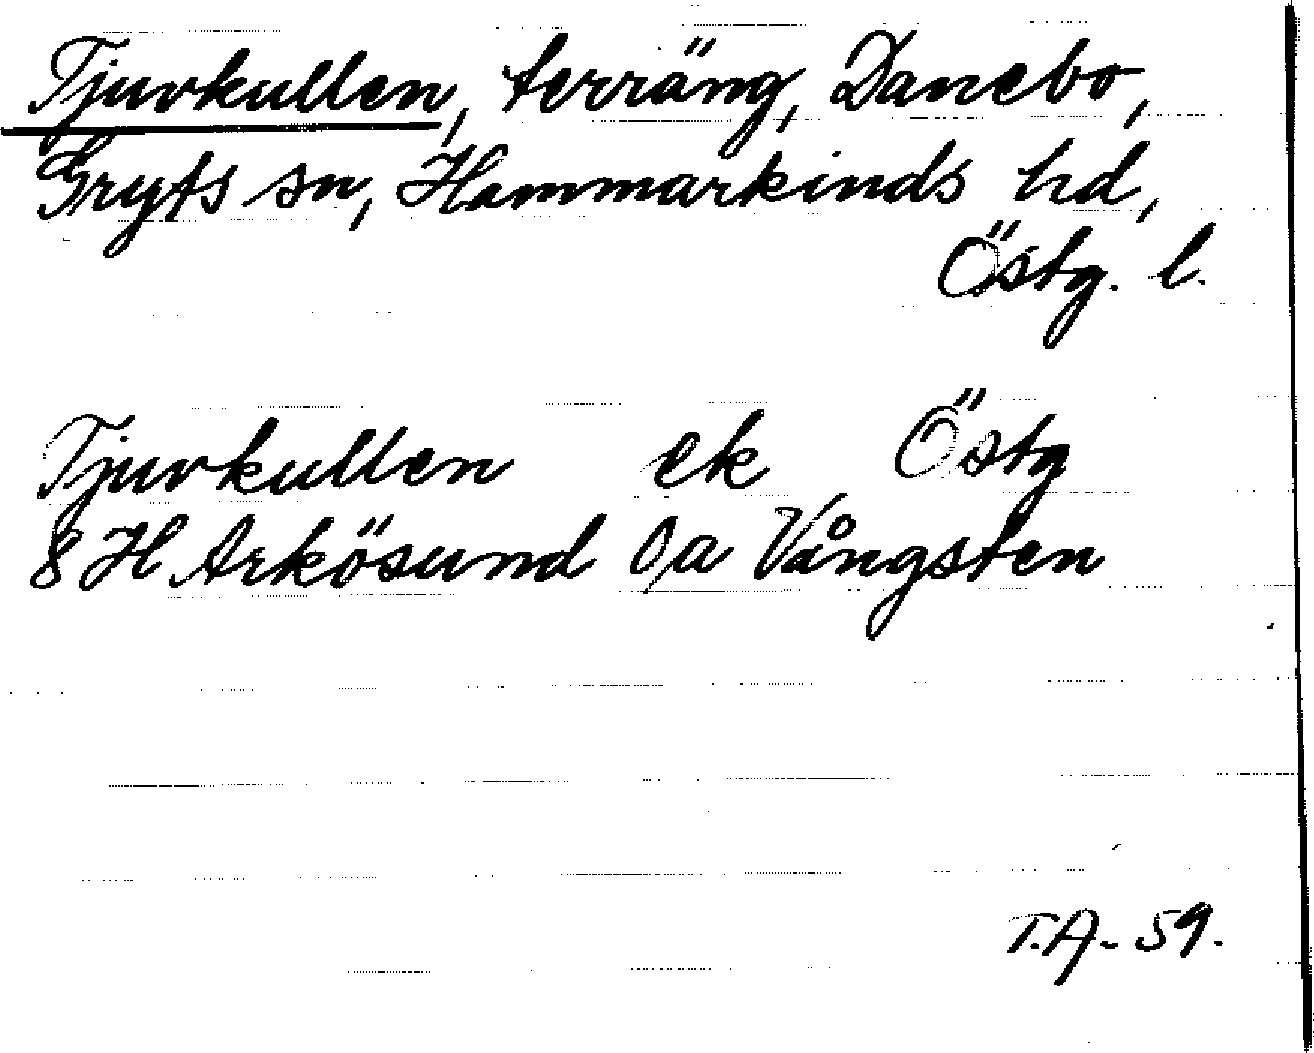 Tjuvkullen, terräng, Danebo,
Gryts sn, Hammarkinds hd,
Östg. l.
Tjuvkullen ek Östg
8 H Arkösund 0 a Vångsten
T.A. 59.